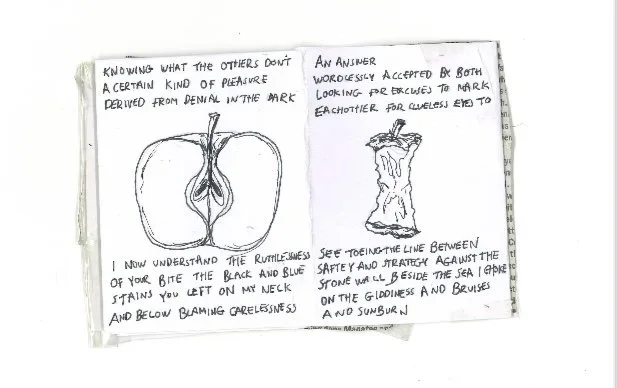 KNOWING WHAT THE OTHERS DON'T
A CERTAIN KIND OF PLEASURE
DERIVED FROM DENIAL IN THE DARK
I NOW UNDERSTAND THE RUTHLESSNESS
OF YOUR BITE THE BLACK AND BLUE
STAINS YOU LEFT ON MY NECK
AND BELOW BLAMING CARELESSNESS
AN ANSWER
WORDLESSLY ACCEPTED BY BOTH
LOOKING FOR EXCUSES TO MARK
EACHOTHER FOR CLUELESS EYES TO
SEE TOEING THE LINE BETWEEN
SAFTEY AND STRATEGY AGAINST THE
STONE WALL BESIDE THE SEA I CHOKE
ON THE GIDDINESS AND BRUISES
AND SUNBURN